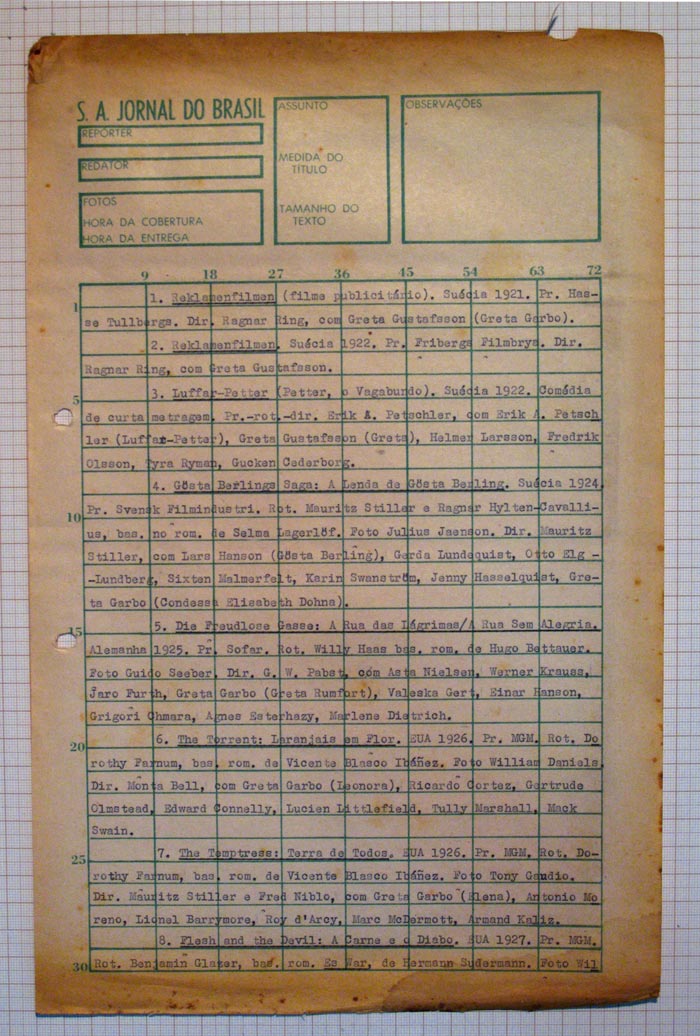 S. A. JORNAL DO BRASIL
REPÓRTER
REDATOR
FOTOS
HORA DA COBERTURA
HORA DA ENTREGA
ASSUNTO
MEDIDA DO
TÍTULO
TAMANHO DO
TEXTO
OBSERVAÇÕES
9 18 27 36 45 54 63 72
1
1. Reklamenfilmen (filme publicitário). Suécia 1921. Pr. Has-
se Tullbergs. Dir. Ragnar Ring, com Greta Gustafsson (Greta Garbo).
2. Reklamenfilmen. Suécia 1922. Pr. Fribergs Filmbryn. Dir.
Ragnar Ring, com Greta Gustafsson.
3. Luffar-Petter (Petter, o Vagabundo). Suécia 1922. Comédia
5
de curta metragem. Pr.-rot.-dir. Erik A. Petschler, com Erik A. Petsch
ler (Luffar-Petter), Greta Gustafsson (Greta), Helmer Larsson, Fredrik
Olsson, Tyra Ryman, Gucken Cederborg.
4. Gösta Berlings Saga: A Lenda de Gösta Berling. Suécia 1924.
Pr. Svensk Filmindustri. Rot. Mauritz Stiller e Ragnar Hylten-Cavalli-
10
us, bas. no rom. de Selma Lagerlöf. Foto Julius Jaenson. Dir. Mauritz
Stiller, com Lars Hanson (Gösta Berling), Gerda Lundequist, Otto Elg -
-Lundberg, Sixten Malmerfelt, Karin Swanström, Jenny Hasselquist, Gre-
ta Garbo (Condessa Elisabeth Dohna).
5. Die Freudlose Gasse: A Rua das Lágrimas/A Rua Sem Alegria.
15
Alemanha 1925. Pr. Sofar. Rot. Willy Haas bas. rom. de Hugo Bettauer.
Foto Guido Seeber. Dir. G. W. Pabst, com Asta Nielsen, Werner Krauss,
Jaro Furth, Greta Garbo (Greta Rumfort), Valeska Gert, Einar Hanson,
Grigori Chmara, Agnes Esterhazy, Marlene Dietrich.
6. The Torrent: Laranjais em Flor. EUA 1926. Pr. MGM. Rot. Do
20
rothy Farnum, bas. rom. de Vicente Blasco Ibáñez. Foto William Daniels.
Dir. Monta Bell, com Greta Garbo (Leonora), Ricardo Cortez, Gertrude
Olmstead, Edward Connelly, Lucien Littlefield, Tully Marshall, Mack
Swain.
7. The Temptress: Terra de Todos. EUA 1926. Pr. MGM. Rot. Do-
25
rothy Farnum, bas. rom. de Vicente Blasco Ibáñez. Foto Tony Gaudio.
Dir. Mauritz Stiller e Fred Niblo, com Greta Garbo (Elena), Antonio Mo
reno, Lionel Barrymore, Roy d'Arcy, Marc McDermott, Armand Kaliz.
8. Flesh and the Devil: A Carne e o Diabo. EUA 1927. Pr. MGM.
30
Rot. Benjamin Glazer, bas. rom. Es War, de Hermann Sudermann. Foto Wil